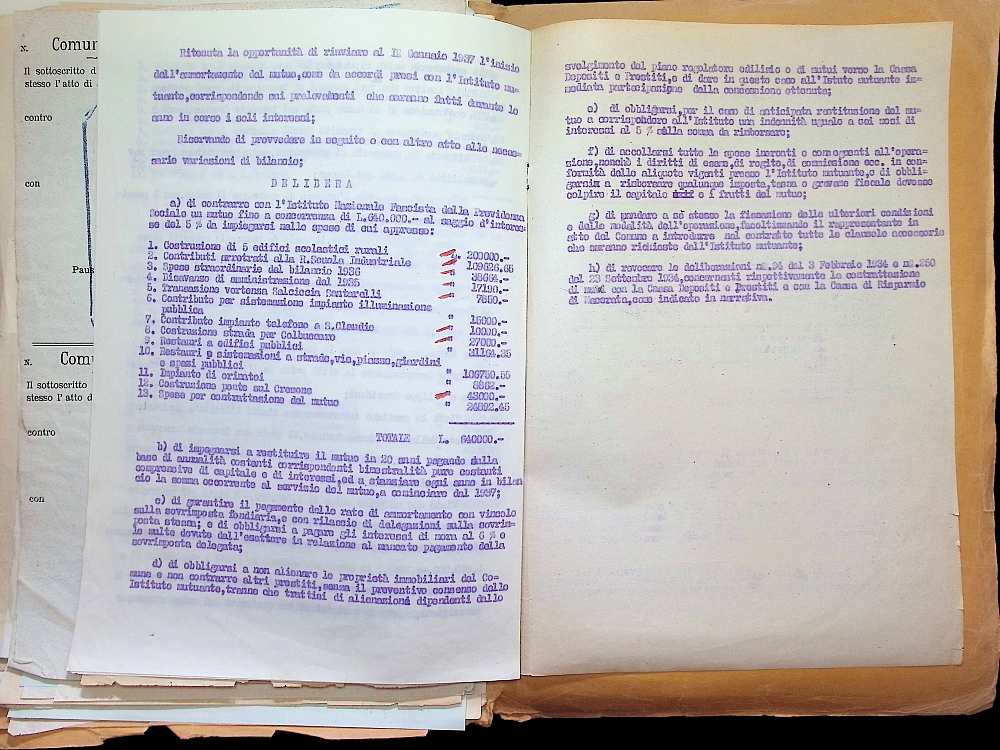 N.
Comun
Il sottoscritto d
stesso l'atto di
contro
con
Paus
N.
Comu
Il sottoscritto
stesso l'atto d
contro
con
Ritenuta la opportunità di rinviare al 1º Gennaio 1937 l'inizio
dell'ammortamento del mutuo,come da accordi presi con l'Istituto mu=
tuante,corrispondendo sui prelevamenti che saranno fatti durante lo
anno in corso i soli interessi;
Riservando di provvedere in seguito e con altro atto alle neces=
sarie variazioni di bilancio;
D E L I B E R A
a) di contrarre con l'Istituto Nazionale Fascista della Previdenza
Sociale un mutuo fino a concorrenza di L.640.000.- al saggio d'interes=
se del 5 % da impiegarsi nelle spese di cui appresso:
1. Costruzione di 5 edifici scolastici rurali L. 200000.-
2. Contributi arretrati alla R.Scuola Industriale " 109626.65
3. Spese straordinarie del bilancio 1936 "
4. Disavanzo di amministrazione del 1935 " 17190.-
5. Transazione vertenza Salciccia Santarelli " 7650.-
6. Contributo per sistemazione impianto illuminazione
pubblica " 15000.-
7. Contributo impianto telefono a S.Claudio " 10000.-
8. Costruzione strada per Colbuccaro " 27000.-
9. Restauri a edifici pubblici " 31164.35
10. Restauri e sistemazioni a strade,vie,piazze,giardini
e spazi pubblici " 106750.55
11. Impianto di orinatoi " 8862.-
12. Costruzione ponte sul Cremone " 43000.-
13. Spese per contrattazione del mutuo " 24892.45
TOTALE L. 640000.-
b) di impegnarsi a restituire il mutuo in 20 anni pagando sulla
base di annualità costanti corrispondenti bimestralità pure costanti
comprensive di capitale e di interessi,ed a stanziare ogni anno in bilan
cio la somma occorrente al servizio del mutuo,a cominciare dal 1937;
c) di garantire il pagamento delle rate di ammortamento con vincolo
sulla sovrimposta fondiaria,e con rilascio di delegazioni sulla sovrim=
posta stessa; e di obbligarsi a pagare gli interessi di mora al 6 % e
le multe dovute dall'esattore in relazione al mancato pagamento della
sovrimposta delegata;
d) di obbligarsi a non alienare le proprietà immobiliari del Co=
mune e non contrarre altri prestiti,senza il preventivo consenso dello
Istituto mutuante,tranne che trattisi di alienazioni dipendenti dallo
svolgimento del piano regolatore edilizio o di mutui verso la Cassa
Depositi e Prestiti,e di dare in questo caso all'Istuto mutuante im=
mediata partecipazione della concessione ottenuta;
e) di obbligarsi,per il caso di anticipata restituzione del mu=
tuo a corrispondere all'Istituto una indennità uguale a sei mesi di
interessi al 5 % sulla somma da rimborsare;
f) di accollarsi tutte le spese inerenti e conseguenti all'opera=
zione,nonchè i diritti di esame,di rogito,di commissione ecc. in con=
formità delle aliquote vigenti presso l'Istituto mutuante,e di obbli=
garsi a rimborsare qualunque imposta,tassa o gravame fiscale dovesse
colpire il capitale e i frutti del mutuo;
g) di mandare a sè stesso la fissazione delle ulteriori condizioni
e delle modalità dell'operazione,facoltizzando il rappresentante in
atto del Comune a introdurre nel contratto tutte le clausole accessorie
che saranno richieste dall'Istituto mutuante;
h) di revocare le deliberazioni nº.24 del 3 Febbraio 1934 e nº.250
del 22 Settembre 1934,concernenti rispettivamente la contrattazione
di mutui con la Cassa Depositi e Prestiti e con la Cassa di Risparmio
di Macerata,come indicato in narrativa.